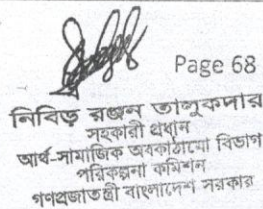 Page 68
নিবিড় রঞ্জন তালুকদার
সহকারী প্রধান
আর্থ-সামাজিক অবকাঠামো বিভাগ
পরিকল্পনা কমিশন
গণপ্রজাতন্ত্রী বাংলাদেশ সরকার